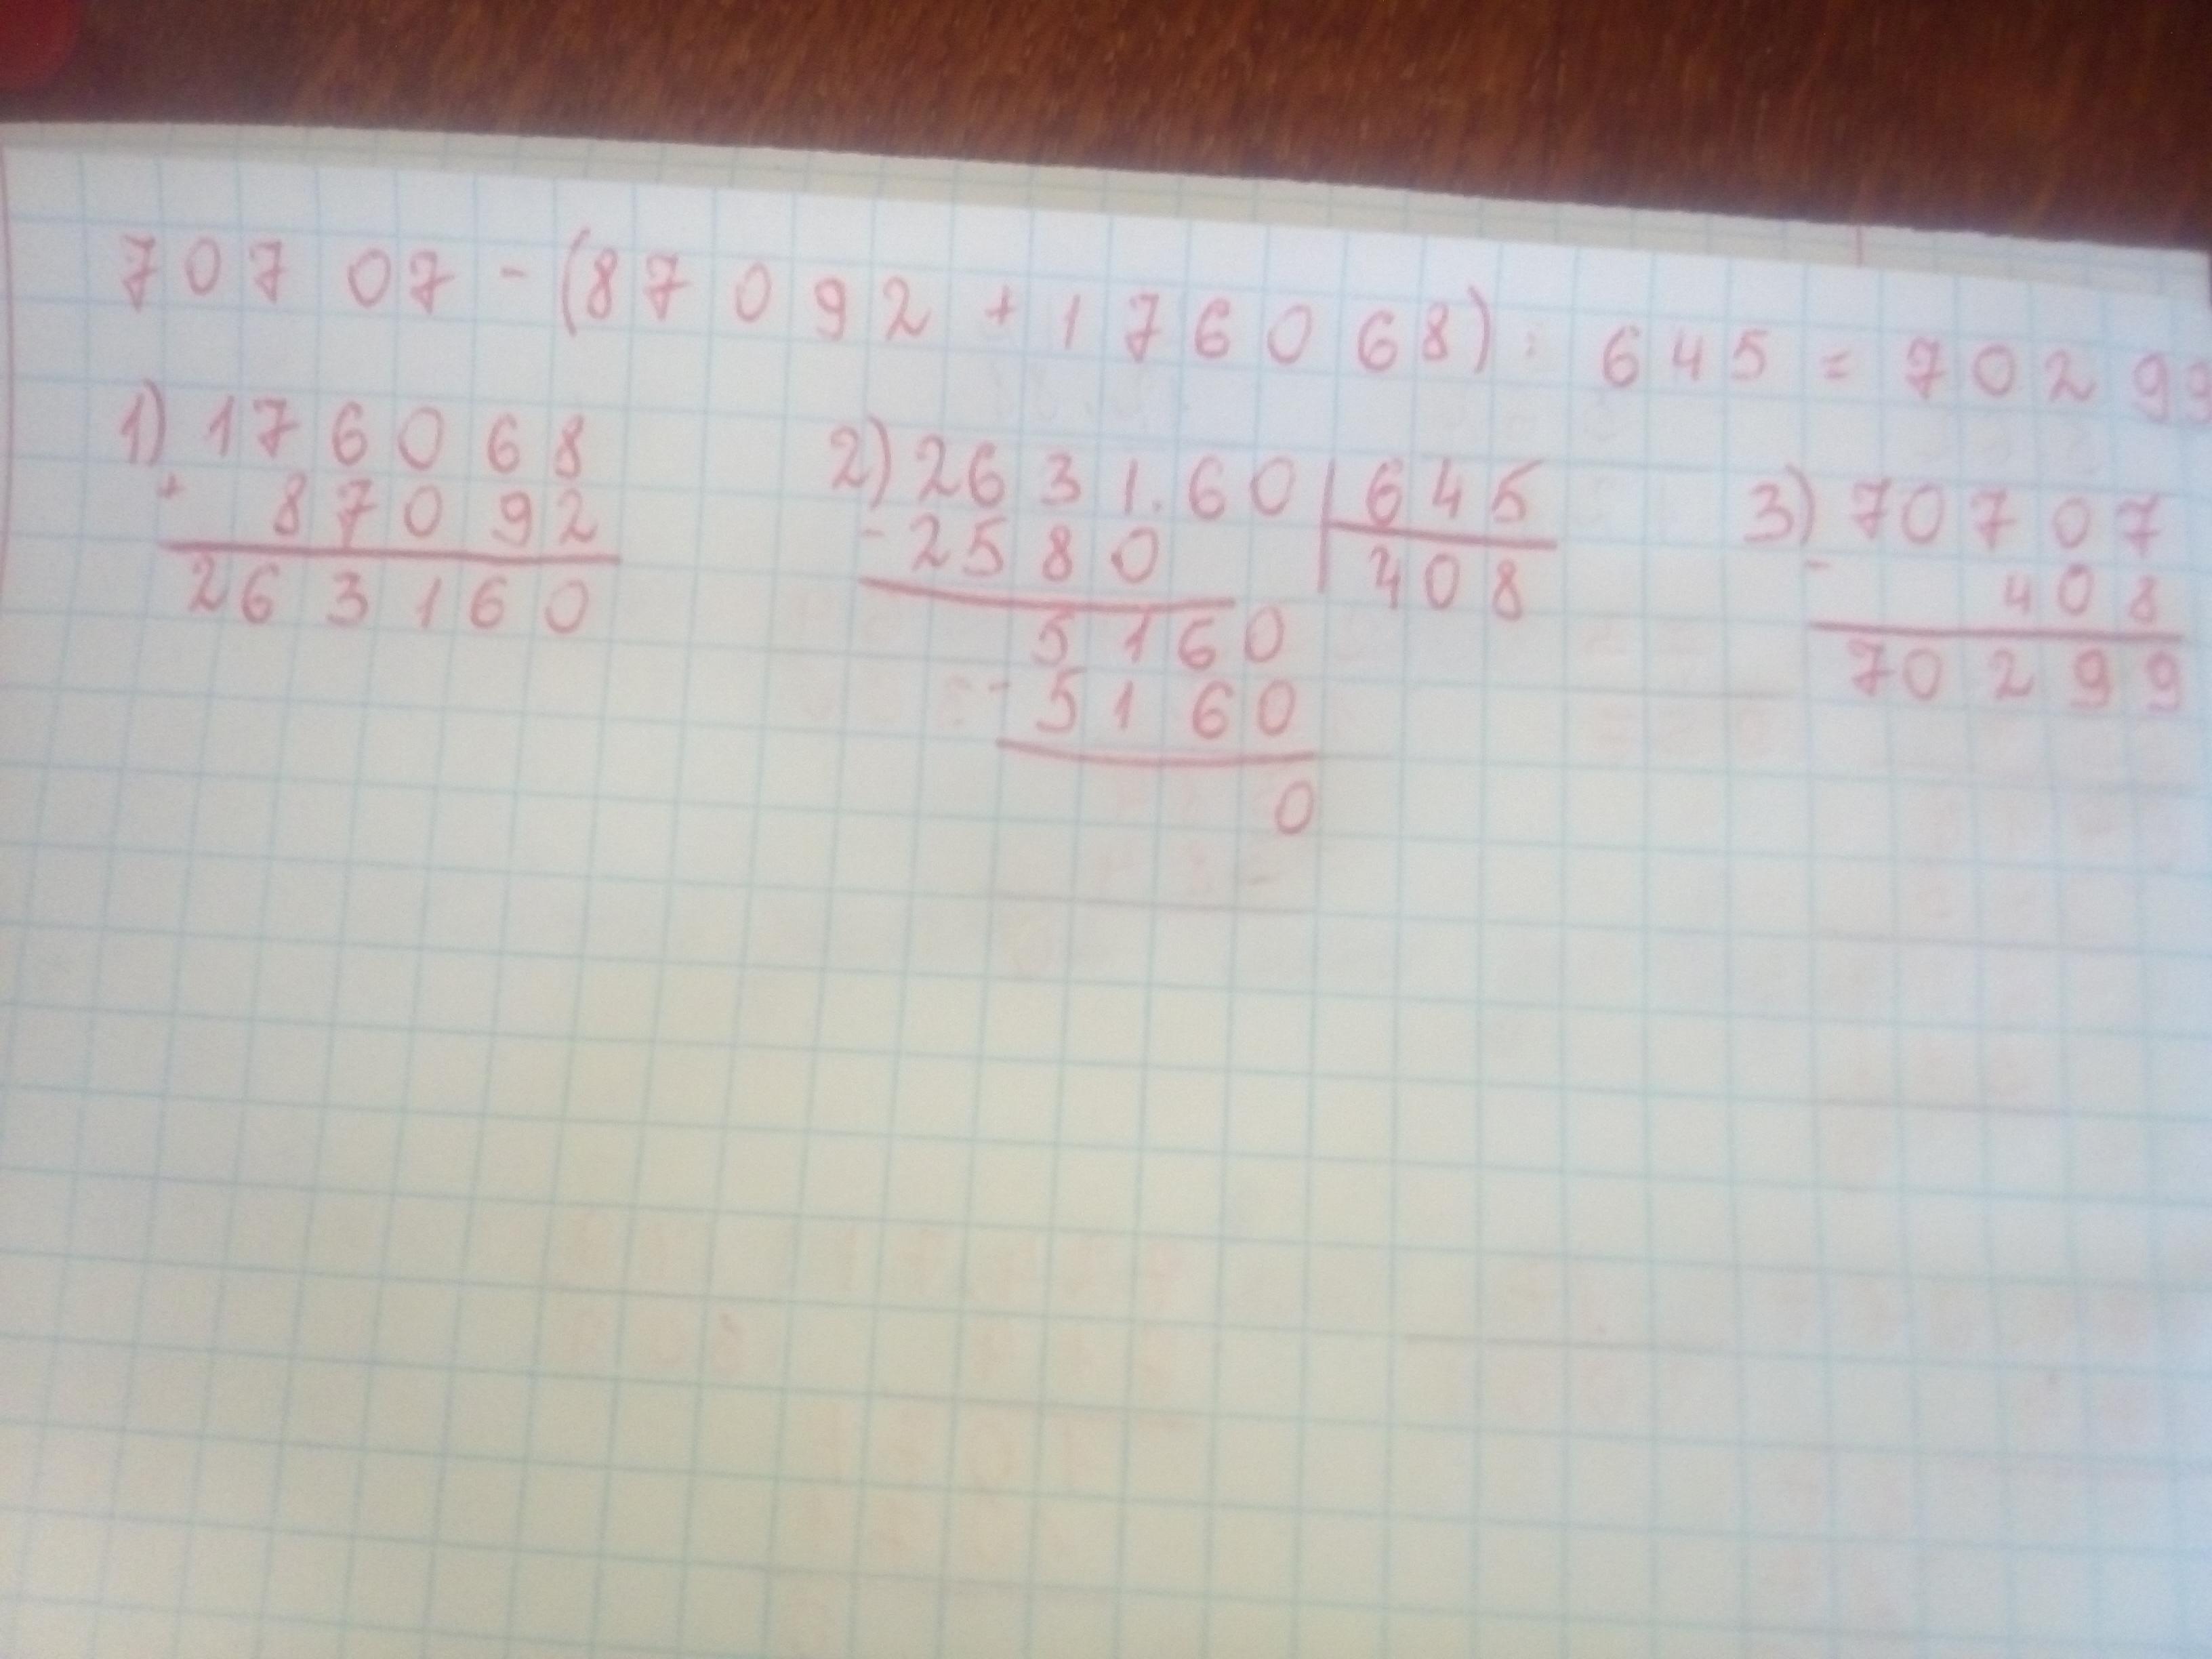 70707 - (87092 + 176068) : 645 = 70299
1) 176068
+ 87092
263160
2) 2631.60 | 645
- 2580 | 408
5160
- 5160
0
3) 70707
- 408
70299